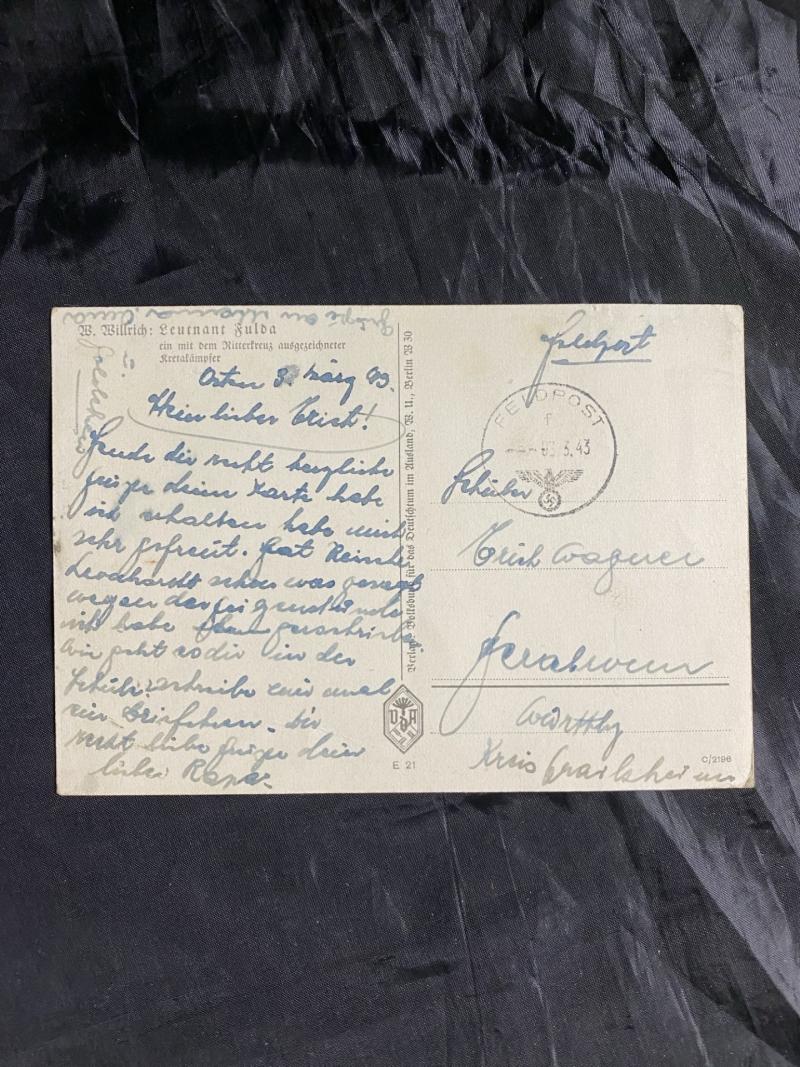 W. Willrich: Leutnant Fulda
ein mit dem Ritterkreuz ausgezeichneter
Kretakämpfer
Osten 3. März 43.
Mein lieber Erich!
Sende dir recht herzliche
grüße deine Karte habe
ich erhalten habe mich
sehr gefreut. hat
Leonhardt schon was gesagt
wegen der
ich habe geschrieben
wie geht es dir in der
Schule schreibe mir mal
ein Briefchen. Dir
recht liebe grüße dein
lieber Papa.
grüße an Mama
u.
Verlag: Volksbund für das Deutschtum im Ausland, W. U., Berlin W 30
VDA
E 21
Feldpost
FELDPOST
f
3.43
Schüler
Erich Wagner
Gerabronn
Württbg
Kreis Crailsheim
C/2196